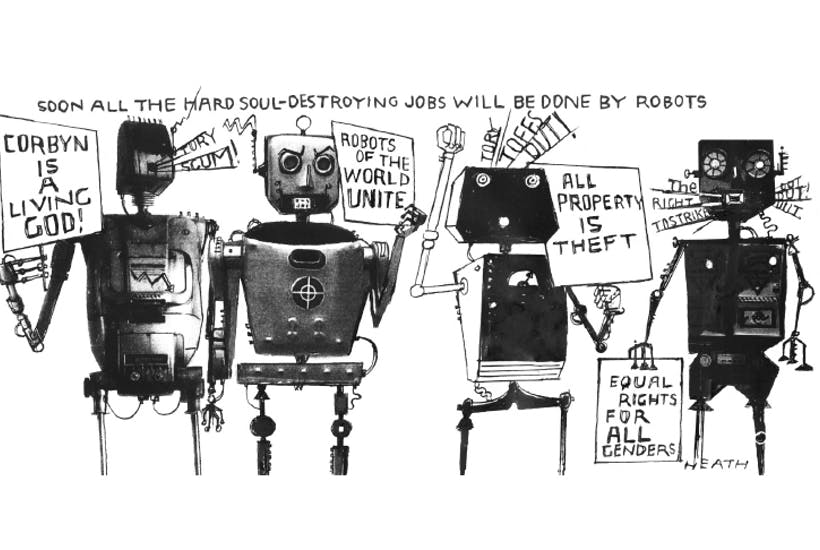 SOON ALL THE HARD SOUL-DESTROYING JOBS WILL BE DONE BY ROBOTS
CORBYN
IS
A
LIVING
GOD!
TORY
SCUM!
ROBOTS
OF THE
WORLD
UNITE
TORY
TOFFS
OUT!
ALL
PROPERTY
IS
THEFT
The
RIGHT
TO STRIKE
OUT!
OUT!
OUT!
EQUAL
RIGHTS
FOR
ALL
GENDERS
HEATH